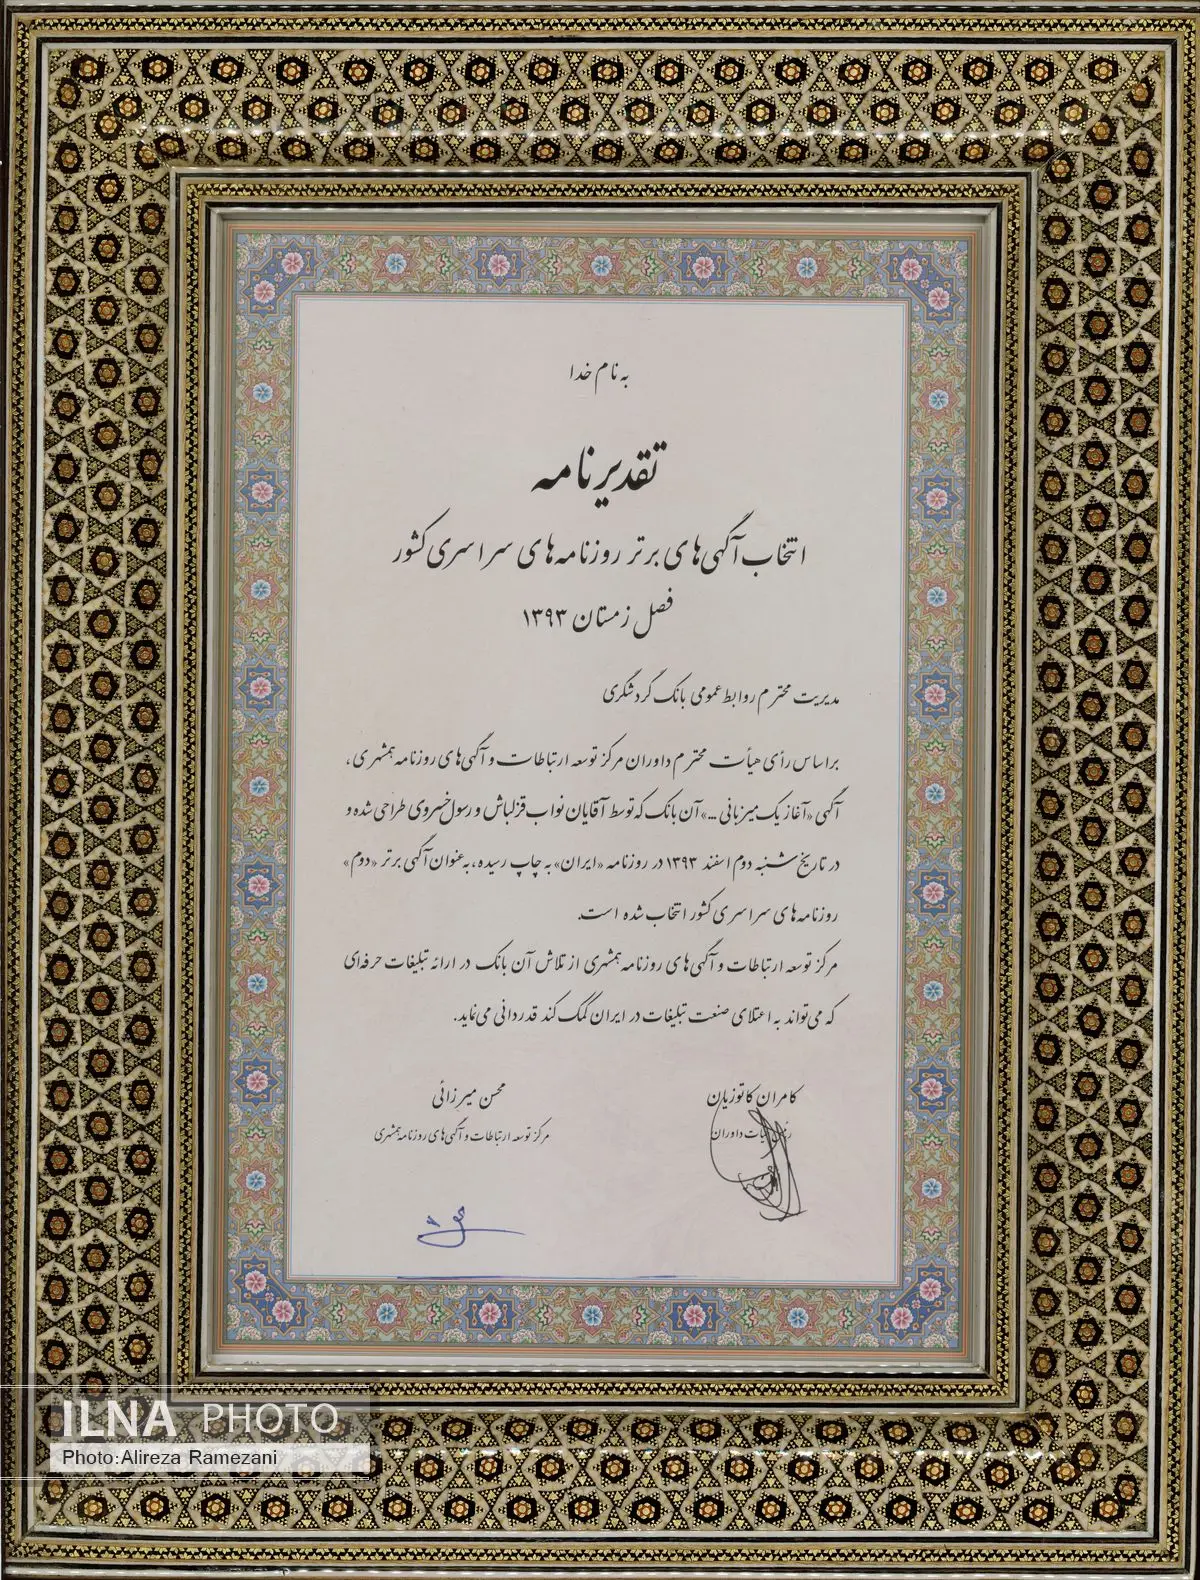 به نام خدا
تقدیرنامه
انتخاب آگهی‌های برتر روزنامه‌های سراسری کشور
فصل زمستان ۱۳۹۳
مدیریت محترم روابط عمومی بانک گردشگری
براساس رأی هیأت محترم داوران مرکز توسعه ارتباطات و آگهی‌های روزنامه همشهری،
آگهی «آغاز یک میزبانی ...» آن بانک که توسط آقایان نواب قزلباش و رسول خسروی طراحی شده و
در تاریخ شنبه دوم اسفند ۱۳۹۳ در روزنامه «ایران» به چاپ رسیده، به‌عنوان آگهی برتر «دوم»
روزنامه‌های سراسری کشور انتخاب شده است.
مرکز توسعه ارتباطات و آگهی‌های روزنامه همشهری از تلاش آن بانک در ارائه تبلیغات حرفه‌ای
که می‌تواند به اعتلای صنعت تبلیغات در ایران کمک کند قدردانی می‌نماید.
کامران کاتوزیان
رئیس هیأت داوران
محسن میرزائی
مرکز توسعه ارتباطات و آگهی‌های روزنامه همشهری
ILNA PHOTO
Photo:Alireza Ramezani